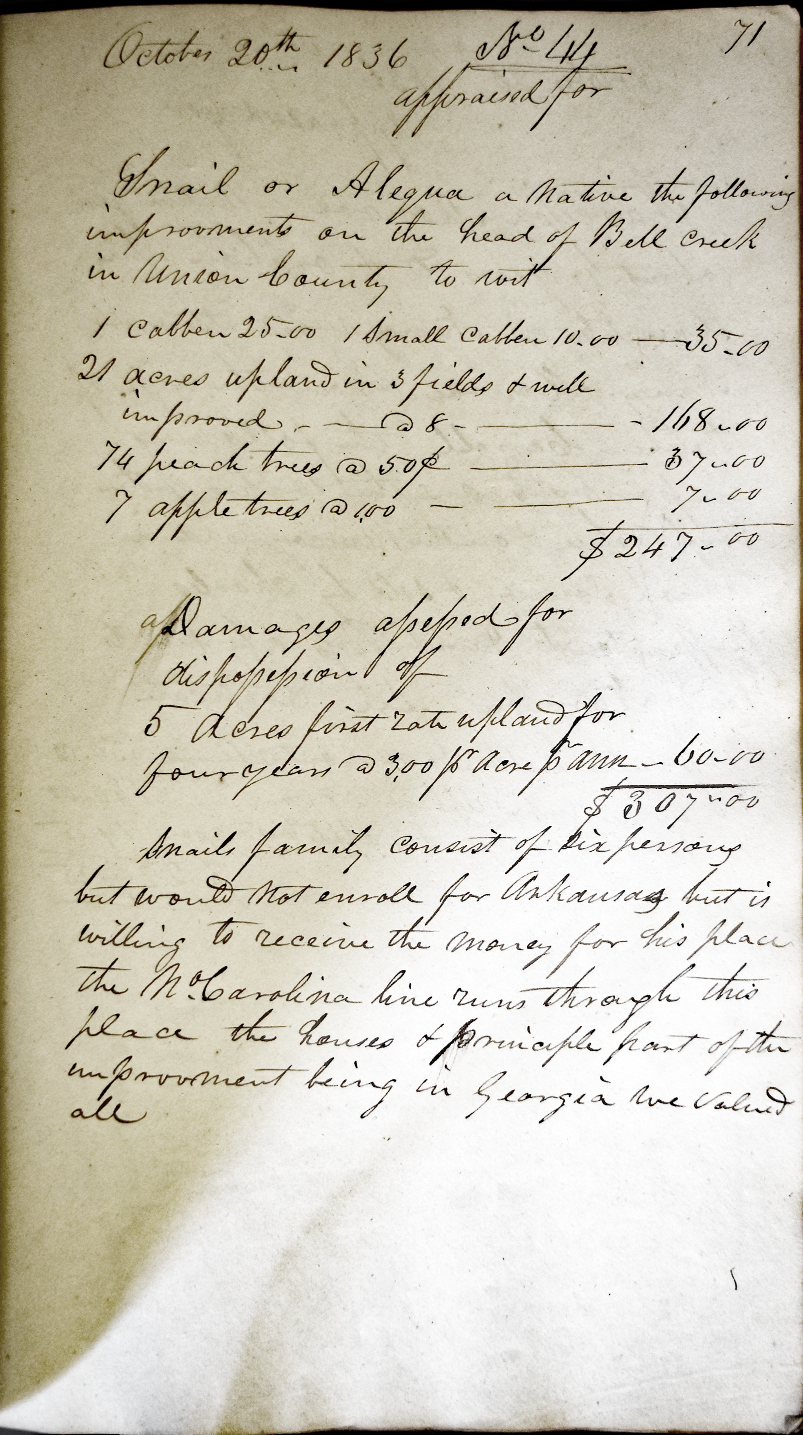 71
October 20th 1836 No 44
appraised for
Snail or Alequa a Native the following
improovments on the head of Bell creek
in Union County to wit
1 cabben 25-00 1 Small cabben 10-00 — 35-00
21 acres upland in 3 fields & well
improved - — @ 8 - — - 168-00
74 peach trees @ 50¢ — 37-00
7 apple trees @ 1,00 — — 7-00
$247-00
Damages assessed for
dispossession of
5 Acres first rate upland for
four years @ 3,00 pr Acre pr Ann — 60-00
$307-00
Snails family consist of Six persons
but would Not enroll for Arkansas but is
willing to receive the money for his place
the No. Carolina line runs through this
place the houses & principle part of the
improovment being in Georgia we valued
all